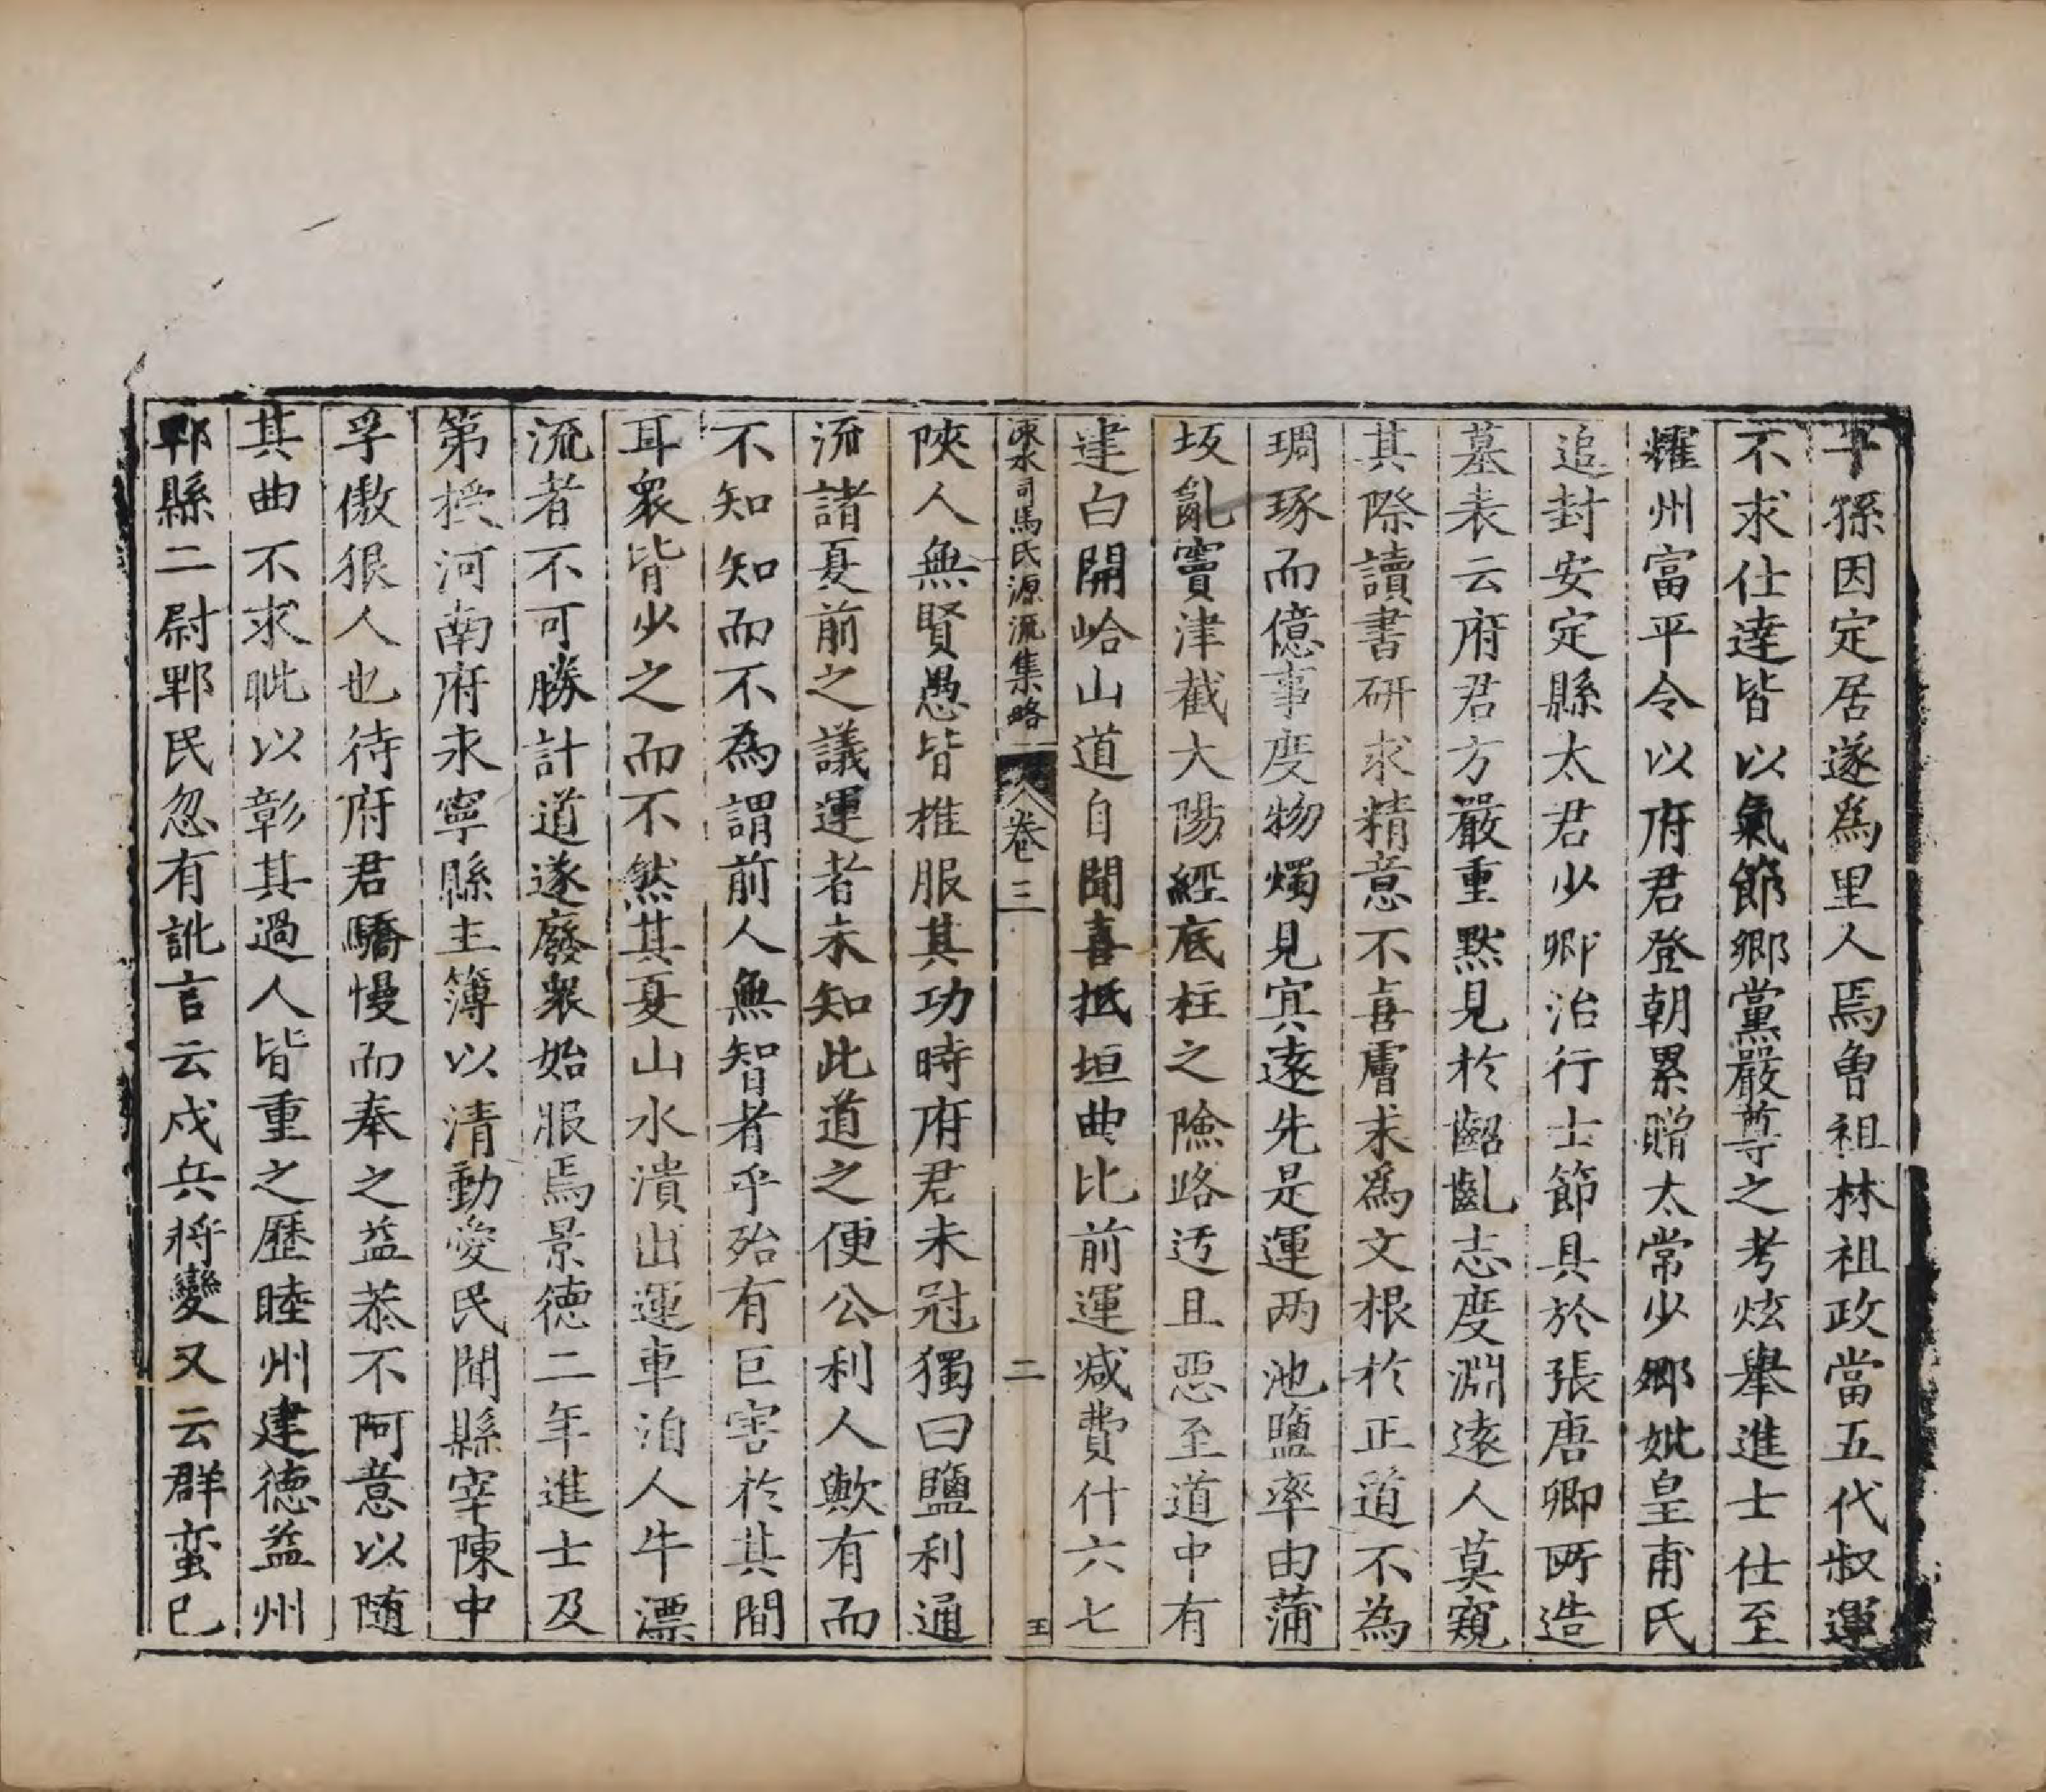 子孫因定居遂為里人焉曾祖林祖政當五代叔運
不求仕達皆以氣節鄉黨嚴尊之考炫舉進士仕至
耀州富平令以府君登朝累贈太常少卿妣皇甫氏
追封安定縣太君少卿治行士節具於張唐卿所造
墓表云府君方嚴重默見於齠齔志度淵遠人莫窺
其際讀書研求精意不喜膚末為文根於正道不為
琱琢而億事度物燭見冥遠先是運两池鹽率由蒲
坂亂竇津截大陽經底柱之險路迃且惡至道中有
建白開峆山道自聞喜抵垣曲比前運减費什六七
涑水司馬氏源流集略 卷三 二 王
陝人無賢愚皆推服其功時府君未冠獨曰鹽利通
流諸夏前之議運者未知此道之便公利人歟有而
不知知而不為謂前人無智者乎殆有巨害於其間
耳衆皆少之而不然其夏山水潰出運車洎人牛漂
流者不可勝計道遂廢衆始服焉景德二年進士及
第授河南府永寧縣主簿以清動愛民聞縣宰陳中
孚傲狠人也待府君驕慢而奉之益恭不阿意以随
其曲不求眦以彰其過人皆重之歷睦州建德益州
郫縣二尉郫民忽有訛言云戍兵將變又云群蛮已